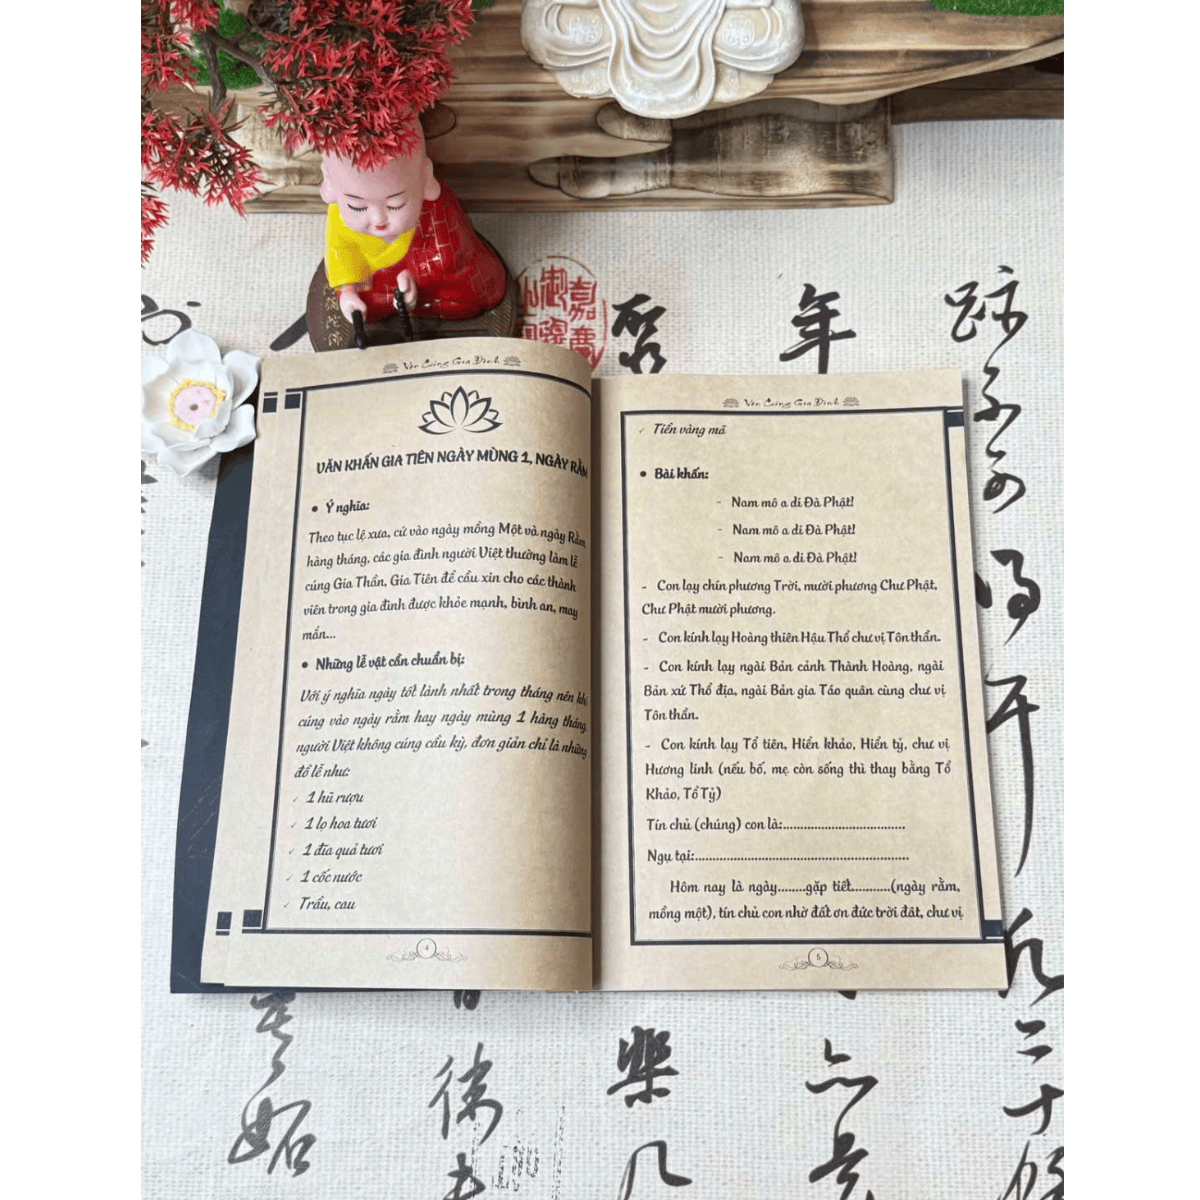 Văn Cúng Gia Đình
VĂN KHẤN GIA TIÊN NGÀY MÙNG 1, NGÀY RẰM
• Ý nghĩa:
Theo tục lệ xưa, cứ vào ngày mồng Một và ngày Rằm
hàng tháng, các gia đình người Việt thường làm lễ
cúng Gia Thần, Gia Tiên để cầu xin cho các thành
viên trong gia đình được khỏe mạnh, bình an, may
mắn...
• Những lễ vật cần chuẩn bị:
Với ý nghĩa ngày tốt lành nhất trong tháng nên khi
cúng vào ngày rằm hay ngày mùng 1 hàng tháng,
người Việt không cúng cầu kỳ, đơn giản chỉ là những
đồ lễ như:
✓ 1 hũ rượu
✓ 1 lọ hoa tươi
✓ 1 đĩa quả tươi
✓ 1 cốc nước
✓ Trầu, cau
4
Văn Cúng Gia Đình
✓ Tiền vàng mã
• Bài khấn:
- Nam mô a di Đà Phật!
- Nam mô a di Đà Phật!
- Nam mô a di Đà Phật!
- Con lạy chín phương Trời, mười phương Chư Phật,
Chư Phật mười phương.
- Con kính lạy Hoàng thiên Hậu Thổ chư vị Tôn thần.
- Con kính lạy ngài Bản cảnh Thành Hoàng, ngài
Bản xứ Thổ địa, ngài Bản gia Táo quân cùng chư vị
Tôn thần.
- Con kính lạy Tổ tiên, Hiển khảo, Hiển tỷ, chư vị
Hương linh (nếu bố, mẹ còn sống thì thay bằng Tổ
Khảo, Tổ Tỷ)
Tín chủ (chúng) con là:...................................
Ngụ tại:.............................................................
Hôm nay là ngày........gặp tiết...........(ngày rằm,
mồng một), tín chủ con nhờ đất ơn đức trời đât, chư vị
5
年